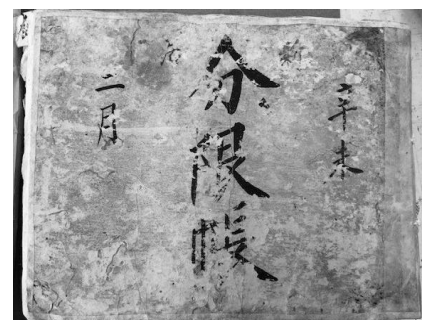 辛未
分限帳
二月